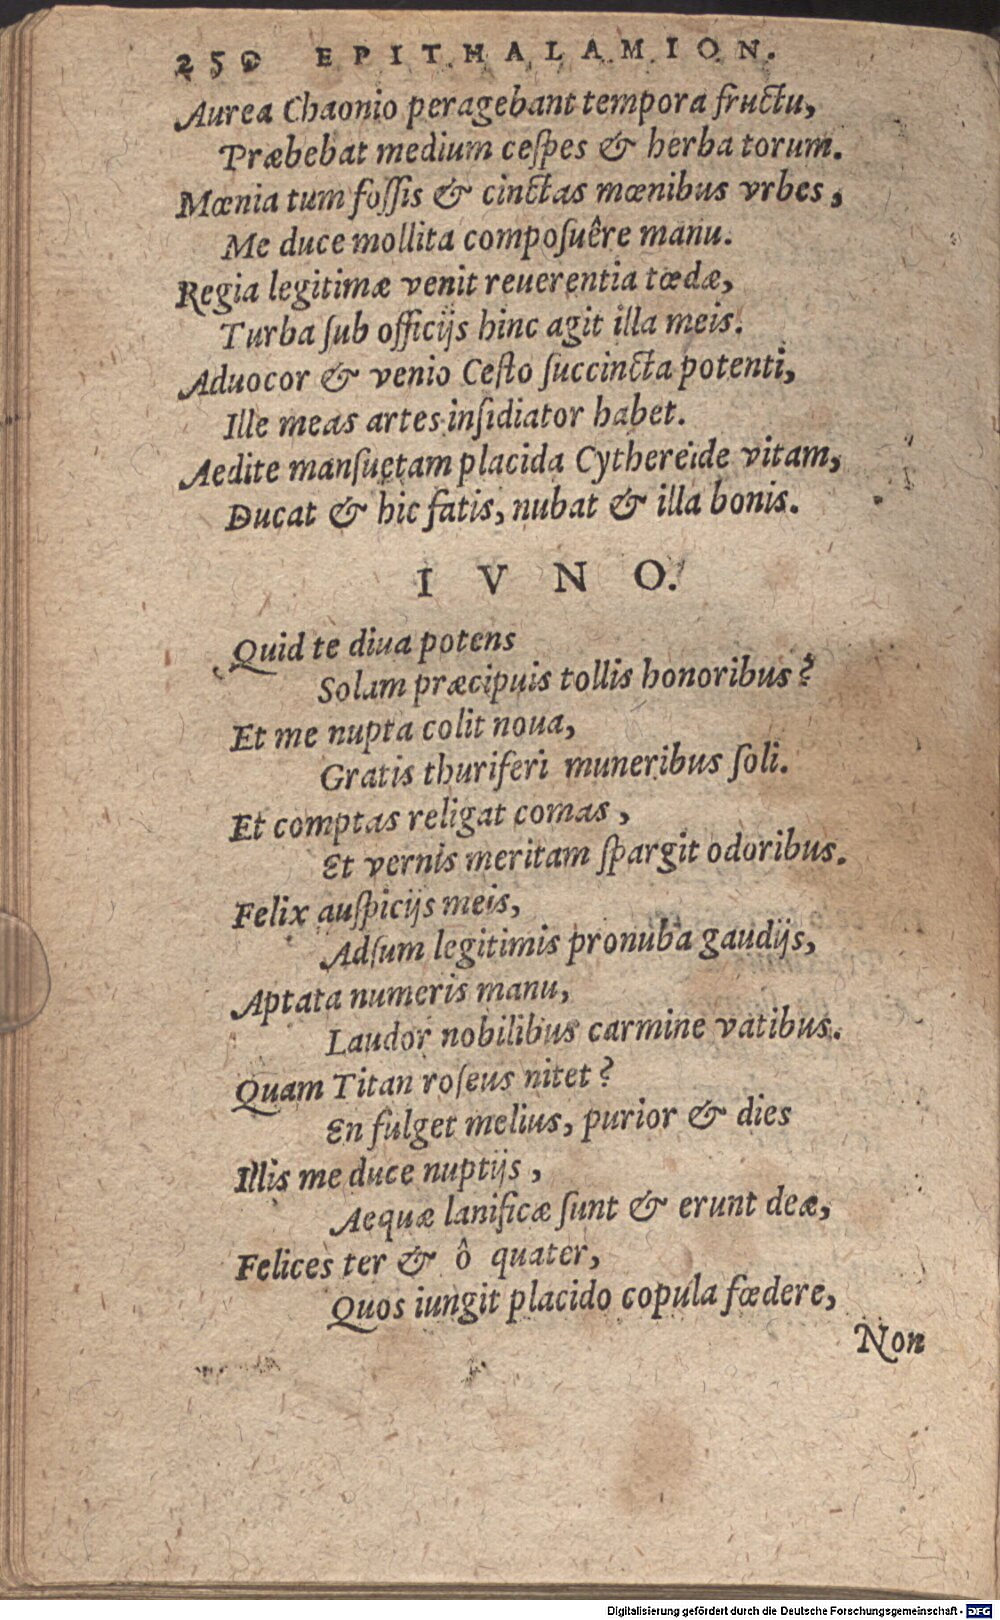 250 EPITHALAMION.
Aurea Chaonio peragebant tempora fructu,
Præbebat medium ceſpes & herba torum.
Mœnia tum foſſis & cinctas mœnibus vrbes,
Me duce mollita compoſuêre manu.
Regia legitimæ venit reuerentia tœdæ,
Turba ſub officijs hinc agit illa meis.
Aduocor & venio Ceſto ſuccincta potenti,
Ille meas artes inſidiator habet.
Aedite manſuetam placida Cythereide vitam,
Ducat & hic fatis, nubat & illa bonis.
IVNO.
Quid te diua potens
Solam præcipuis tollis honoribus?
Et me nupta colit noua,
Gratis thuriferi muneribus ſoli.
Et comptas religat comas,
Et vernis meritam ſpargit odoribus.
Felix auſpicijs meis,
Adſum legitimis pronuba gaudijs,
Aptata numeris manu,
Laudor nobilibus carmine vatibus.
Quam Titan roſeus nitet?
En fulget melius, purior & dies
Illis me duce nuptijs,
Aequæ lanificæ ſunt & erunt deæ,
Felices ter & ô quater,
Quos iungit placido copula fœdere,
Non
Digitalisierung gefördert durch die Deutsche Forschungsgemeinschaft - DFG